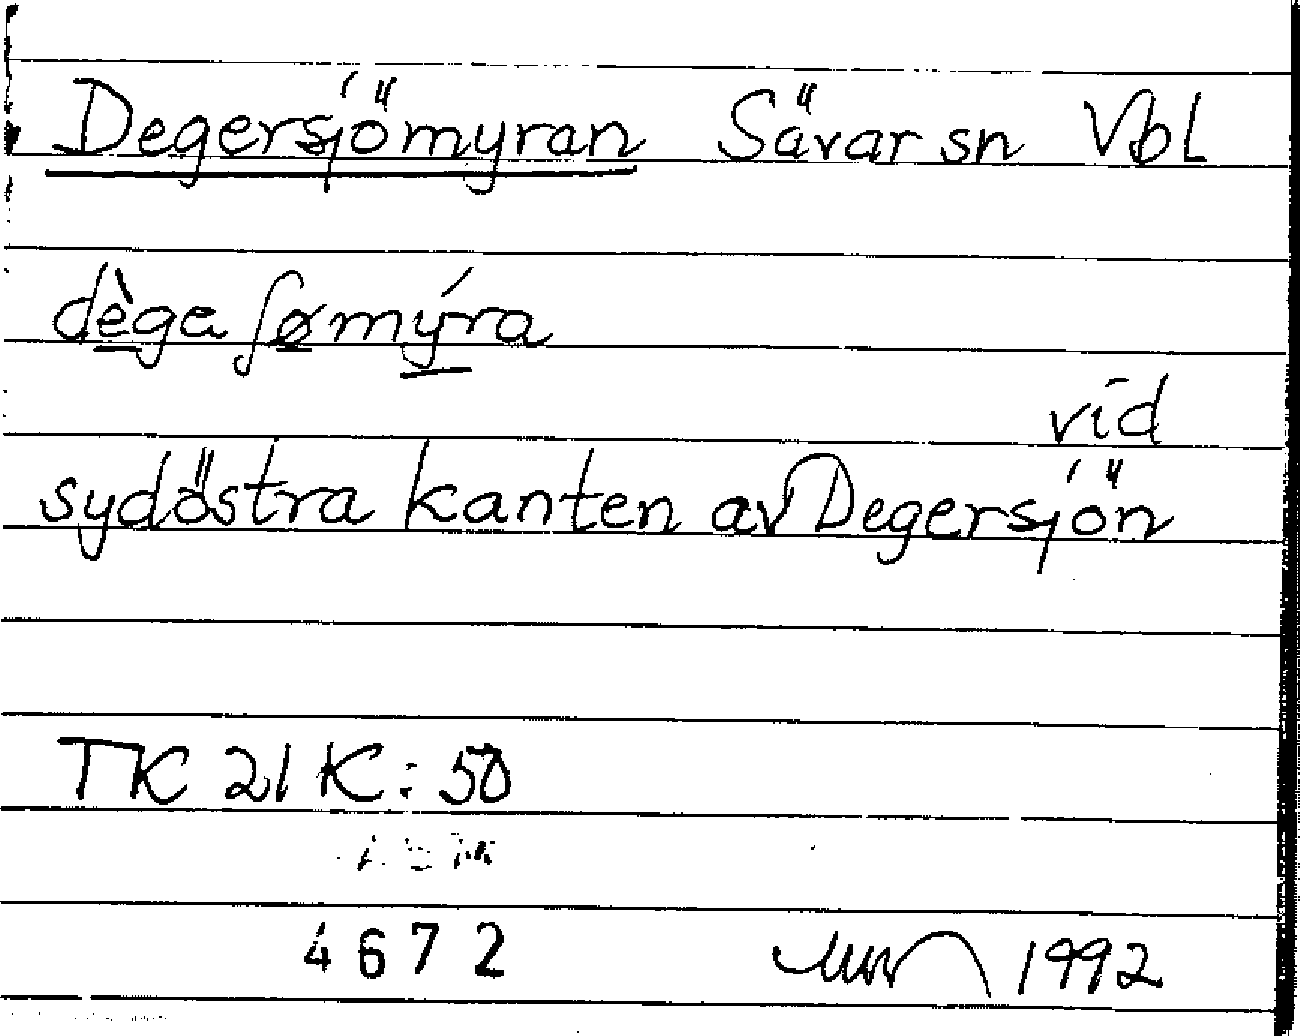 Degersjömyran Sävar sn Vbl
dègaʃømýra
vid
sydöstra kanten av Degersjön
TK 21 K: 50
4672 1992